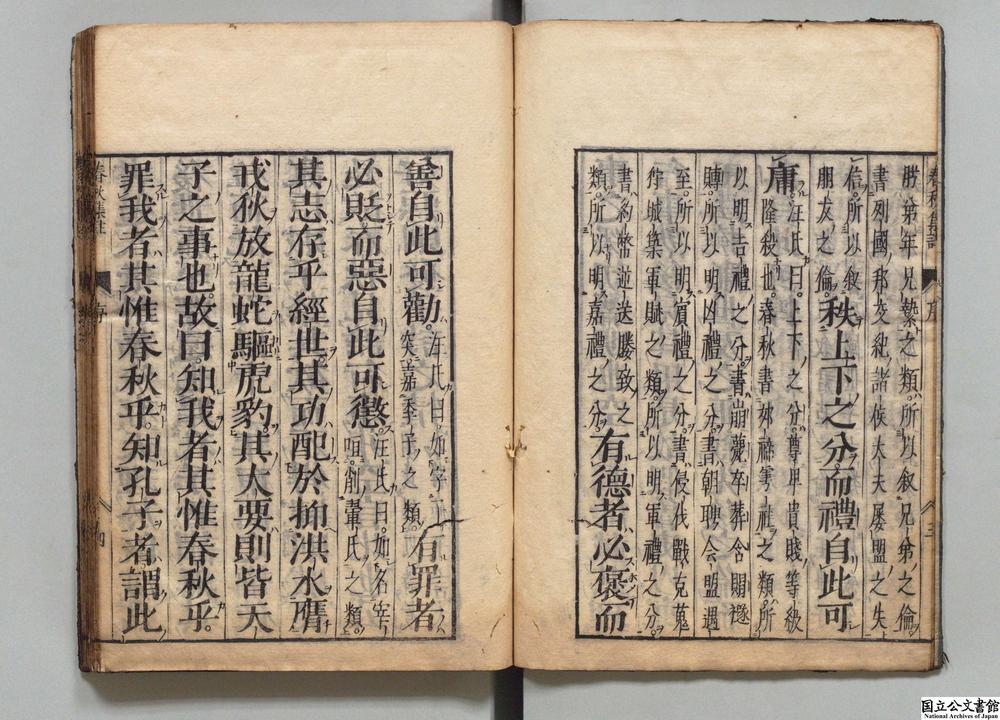 春秋集註 序 三
勝弟年兄縶之類。所以叙兄弟之倫。
書列國邦交紀諸侯大夫屡盟之失
信。所以叙
朋友之倫。
秩上下之分。而禮自此可
庸。
汪氏曰。上下之分。尊卑貴賤等級
隆殺也。春秋書郊禘雩社之類。所
以明吉禮之分。書崩薨卒葬含賵襚
賻。所以明凶禮之分。書朝聘会盟遇
至。所以明賓禮之分。書侵伐戰克蒐
狩城築軍賦之類。所以明軍禮之分。
書約幣逆送勝致之
類。所以明嘉禮之分。
有德者必褒而
善自此可勸。
汪氏曰。如字丁
突嘉季子之類。
有罪者
必貶而惡自此可懲。
汪氏曰。如名宰
咺。削鞏氏之類。
其志存乎經世其功配於抑洪水膺
戎狄放龍蛇驅虎豹。其大要則皆天
子之事也。故曰。知我者其惟春秋乎。
罪我者其惟春秋乎。知孔子者謂此
春秋集註 序 四
国立公文書館
National Archives of Japan